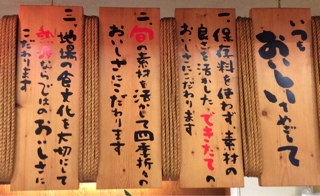 いつも
おいしいをめざして
一、保存料を使わず、素材の
良さを活かしたできたての
おいしさにこだわります
二、旬の素材を活じて四季折々の
おいしさにこだわります
三、地場の食文化を大切にして
ならではのおいしさに
こだわります